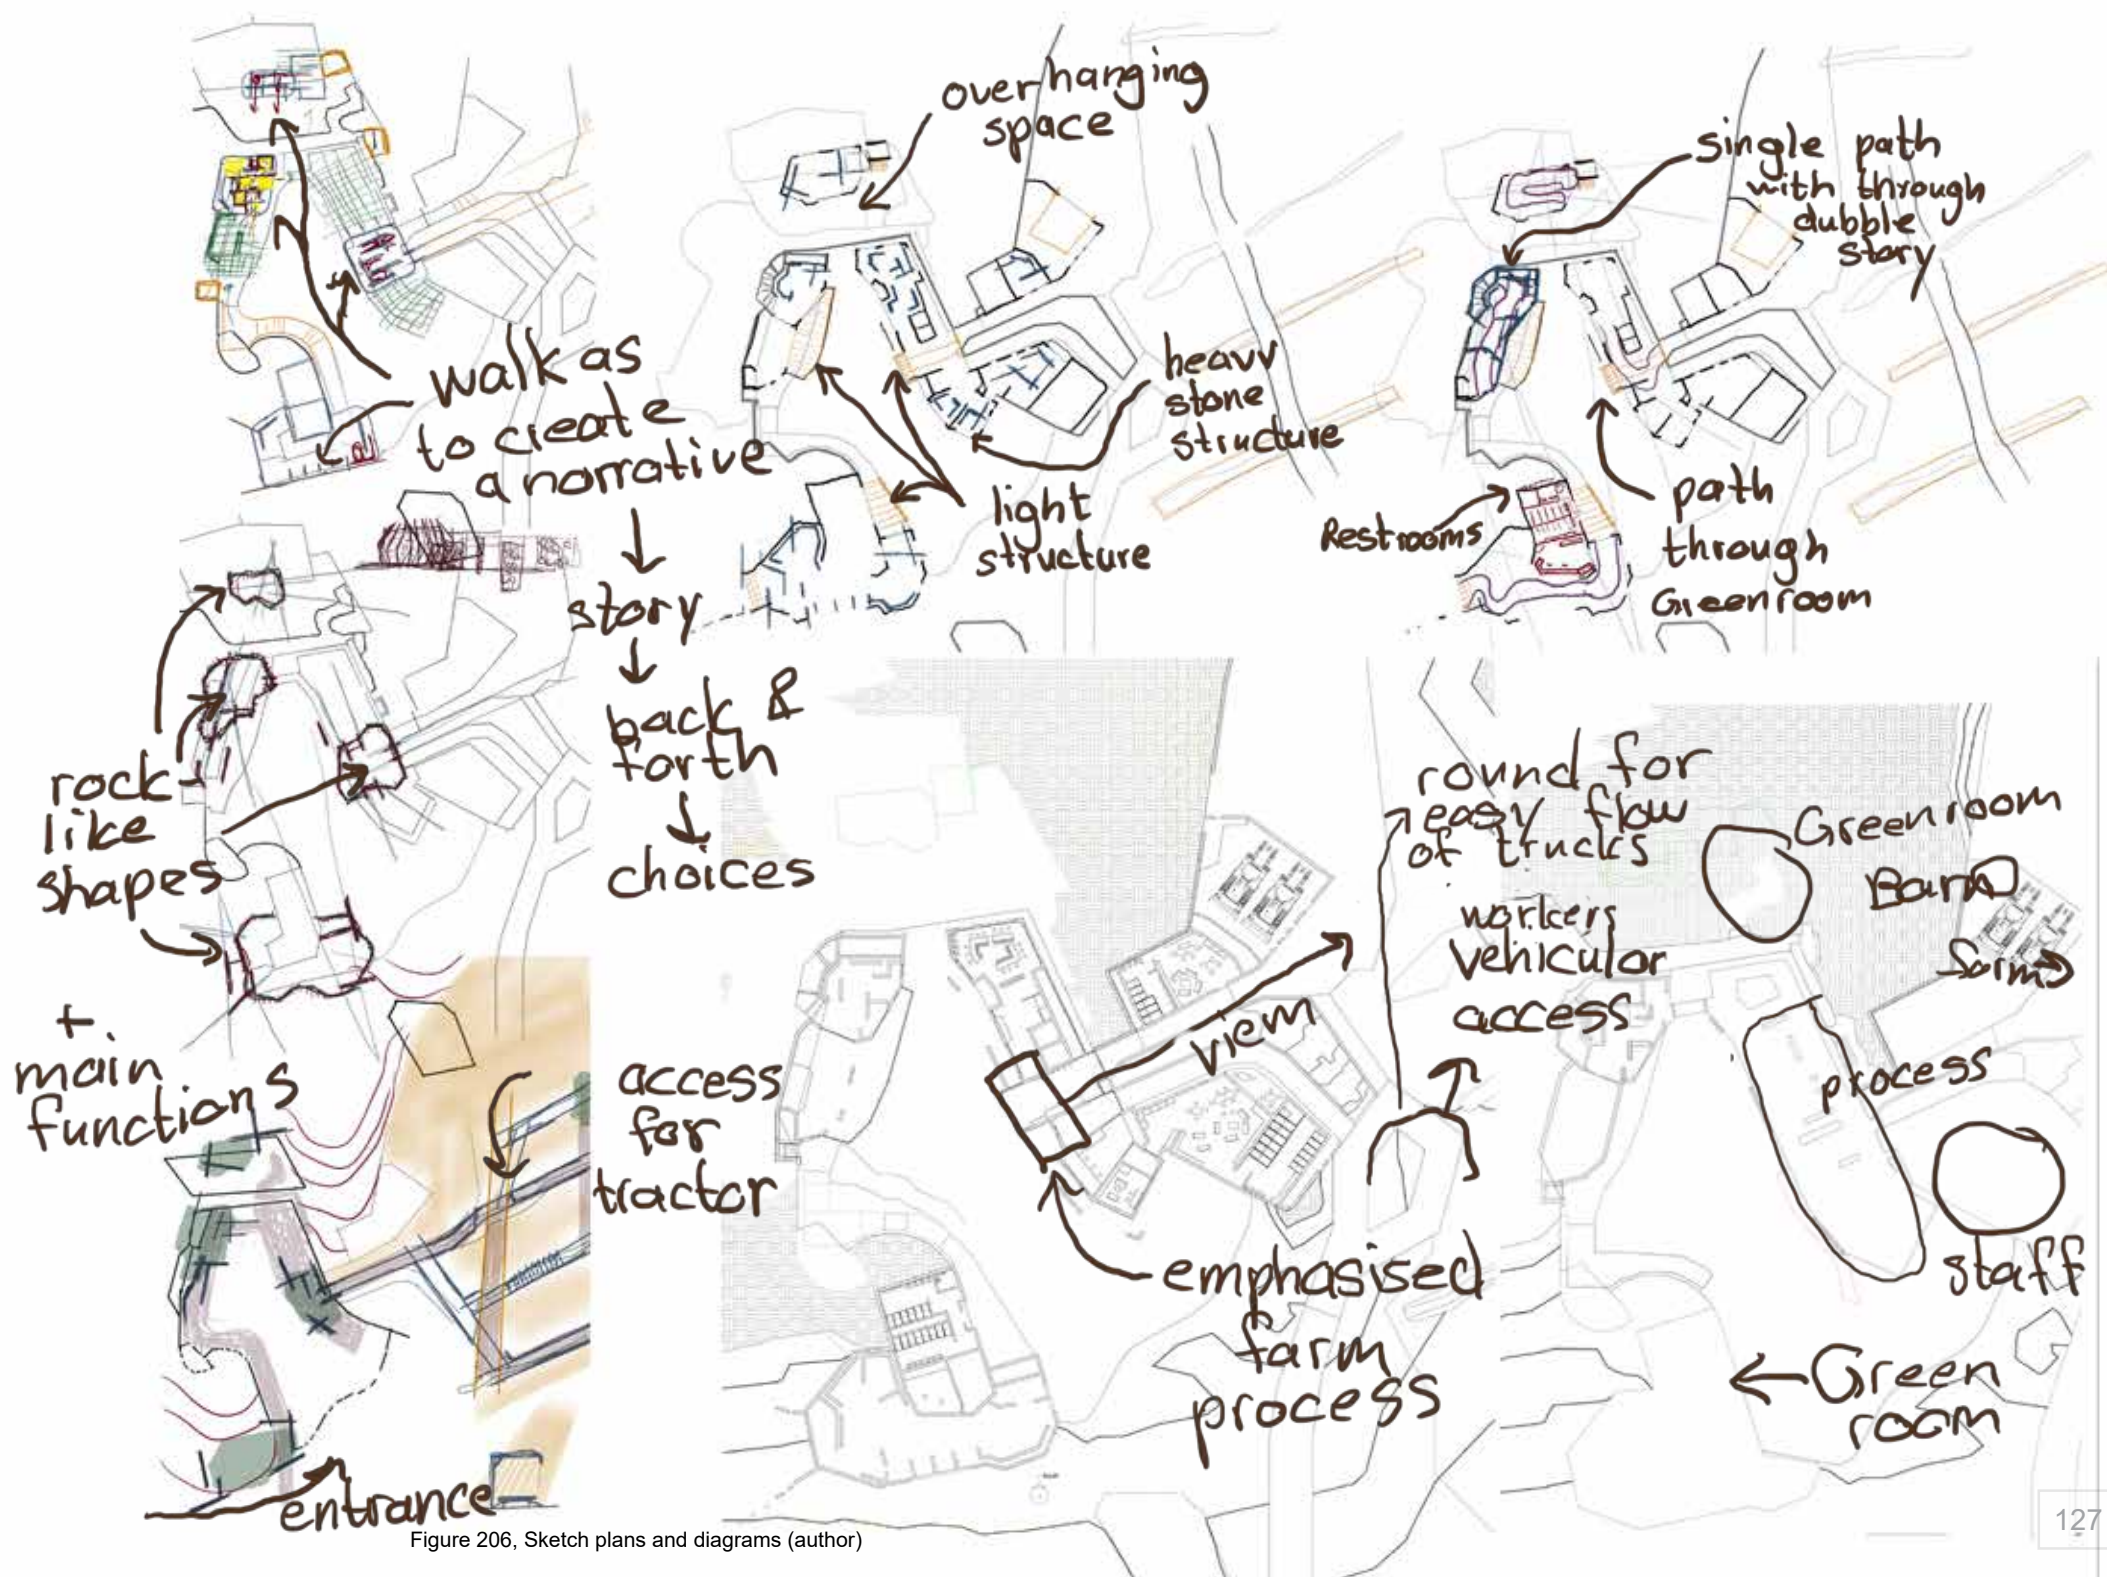 over hanging
space
single path
with through
dubble
story
walk as
to create
a norrative
story
back &
forth
choices
heavv
stone
structure
light
structure
Restrooms
path
through
Greenroom
rock
like
shapes
+
main
functions
access
for
tractor
entrance
round for
easy flow
of trucks
workers
vehiculor
access
view
emphasised
farm
process
Greenroom
Barn
farm
process
staff
Green
room
Figure 206, Sketch plans and diagrams (author)
127